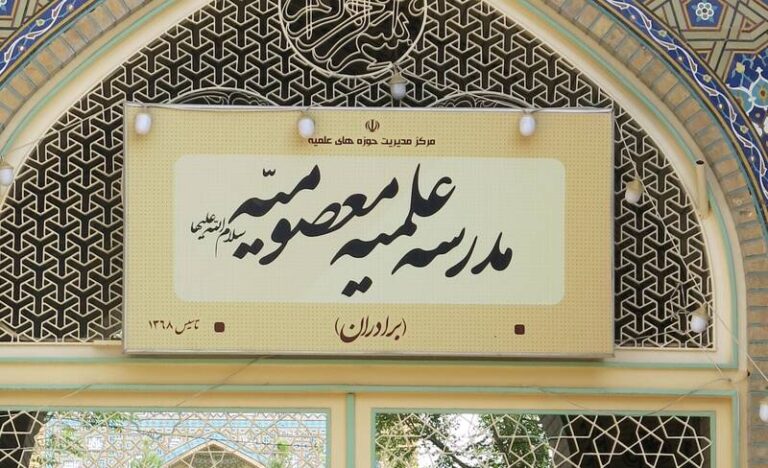 مرکز مدیریت حوزه های علمیه
مدرسه علمیه معصومیّه
سلام الله علیها
(برادران)
تاسیس ۱۳۶۸